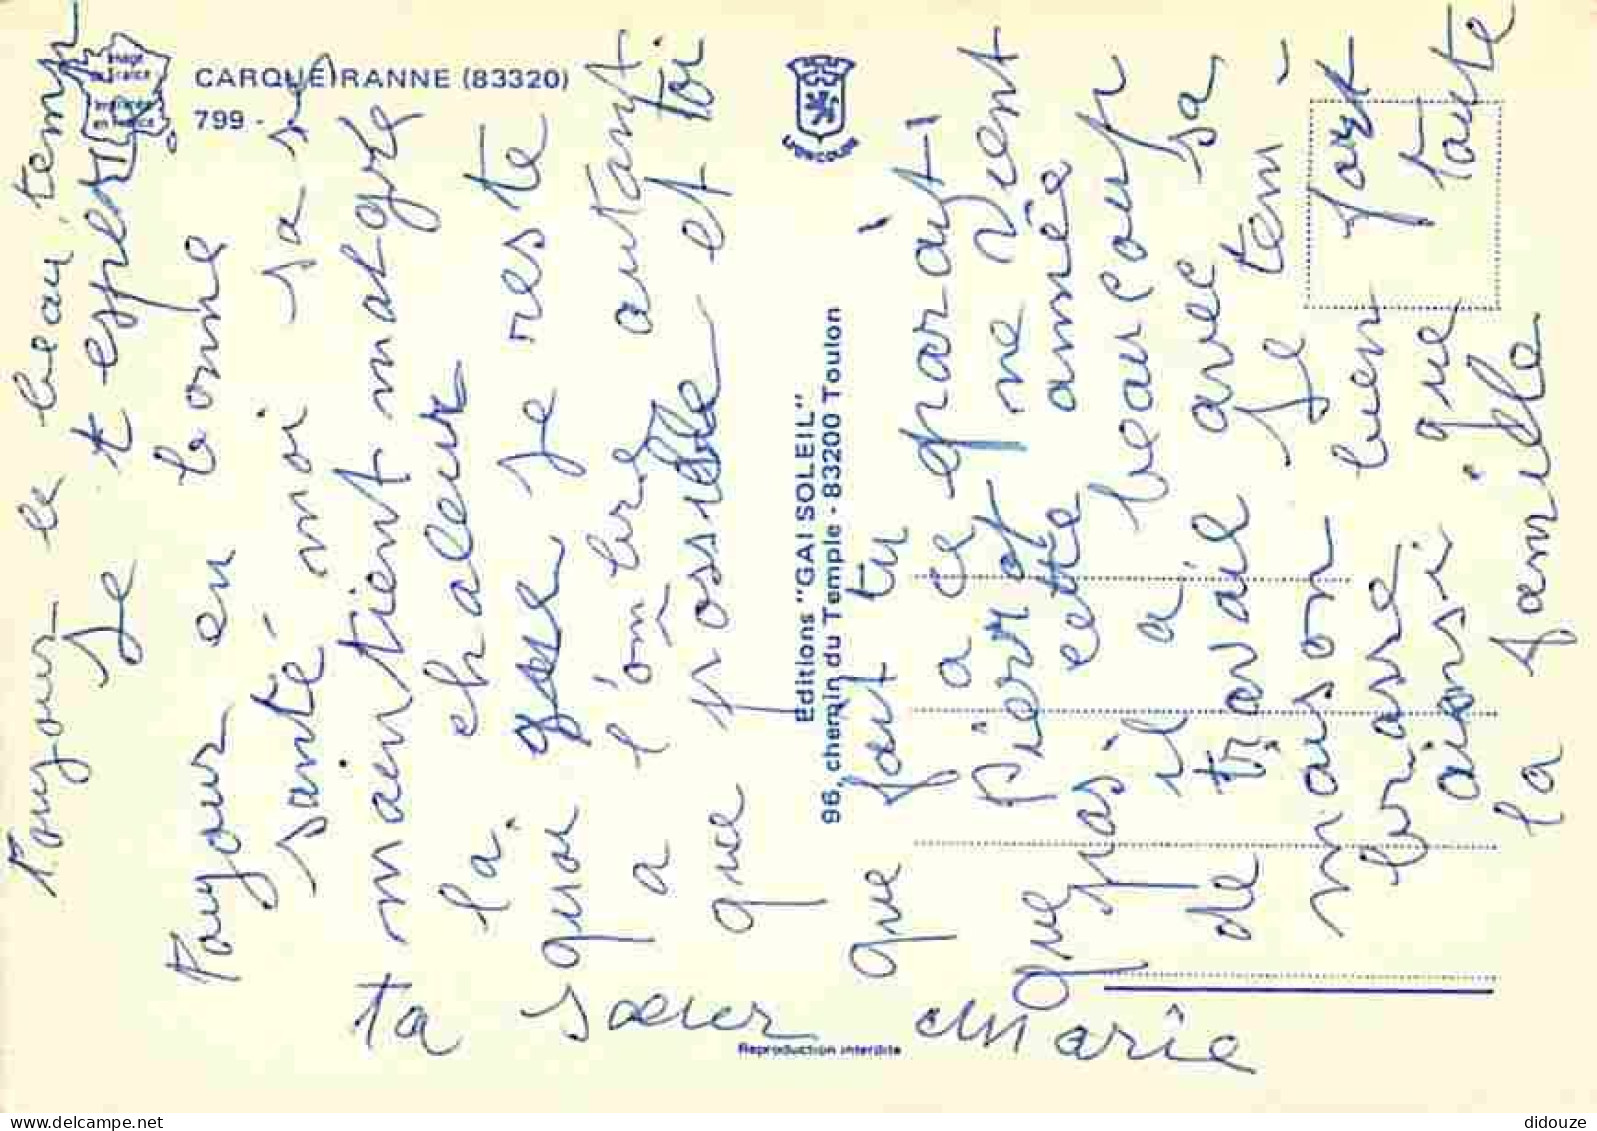 Image
de France
Imprimée
en France
CARQUEIRANNE (83320)
799 -
LYONCOLOR
Editions "GAI SOLEIL"
96, chemin du Temple - 83200 Toulon
Reproduction interdite
Toujour le beau temp
Je t esper
Toujour en bonne
santé moi sa s
maintient malgré
la chaleur
quoi que je reste
a l'ombre autant
que possible et toi
que fait tu
a ce parait
que Pierrot ne vient
pas cette année
il a beaucoup
de travail avec sa
maison Je tem
brasse bien fort
aiensi que toute
la famille
ta sœur Marie
didouze
delcampe.net